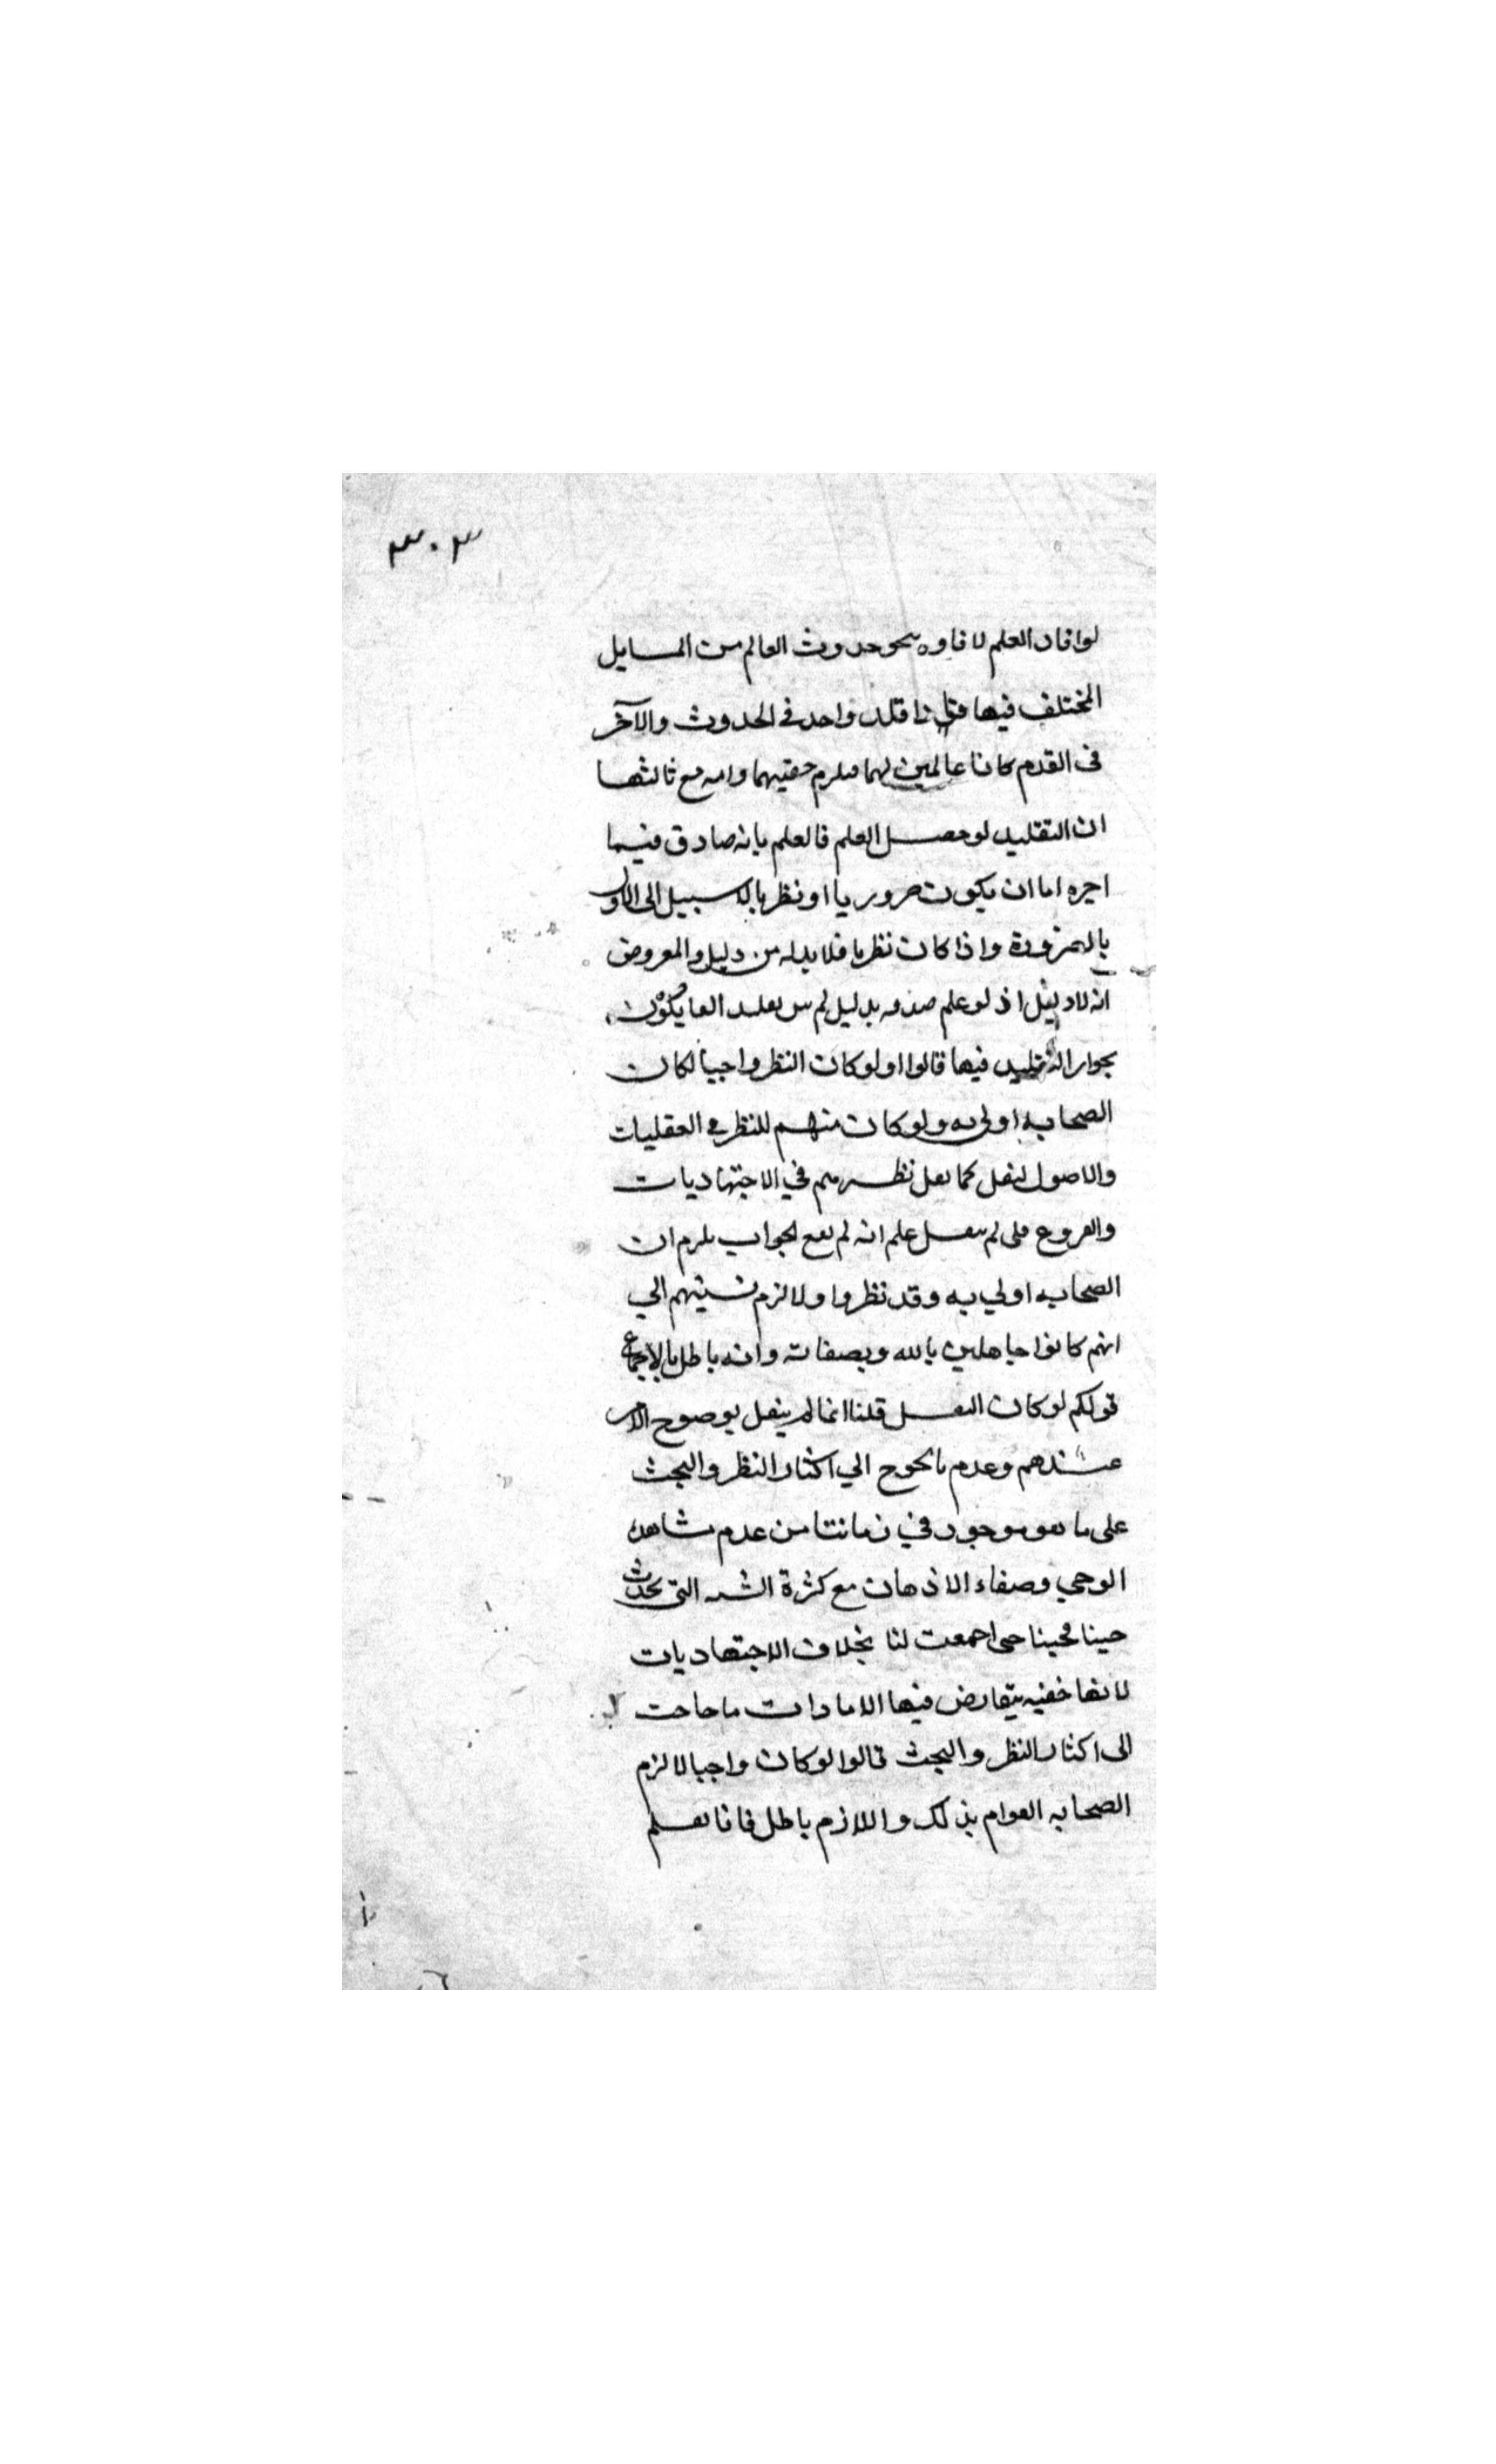 ٣٠٣
لو افاد العلم لافاده بنحو حدوث العالم من المسايل
المختلف فيها فاذا قلد واحد في الحدوث والآخر
في القدم كانا عالمين بهما فيلزم حقيتهما وانه مع ثالثها
ان التقليد لو حصل العلم فالعلم بانه صادق فيما
اخبره اما ان يكون ضروريا او نظريا لا سبيل الى الاول
بالضرورة واذا كان نظريا فلا بد له من دليل والمفروض
انه لا دليل اذ لو علم صدقه بدليل لم يبق تقليد القايلون
بجواز التقليد فيها قالوا اولو كان النظر واجبا لكان
الصحابه اولى به ولو كان منهم للنظر في العقليات
والاصول لنقل كما نقل نظرهم في الاجتهاديات
والفروع فلما لم ينقل علم انه لم يقع الجواب يلزم ان
الصحابه اولي به وقد نظروا ولا لزم نسبتهم الي
انهم كانوا جاهلين بالله وبصفاته وانه باطل بالاجماع
قولكم لو كان لنقل قلنا انما لم ينقل لوضوح الامر
عندهم وعدم ما يحوج الي اكثار النظر والبحث
على ما هو موجود في زماننا من عدم مشاهدة
الوحي وصفاء الاذهان مع كثرة الشبه التي تحدث
حينا فحينا حتى اجمعت لنا بخلاف الاجتهاديات
لانها خفيه يتعارض فيها الامارات فاحتاجت
الى اكثار النظر والبحث قالوا لو كان واجبا لالزم
الصحابه العوام بذلك واللازم باطل فانا نعلم